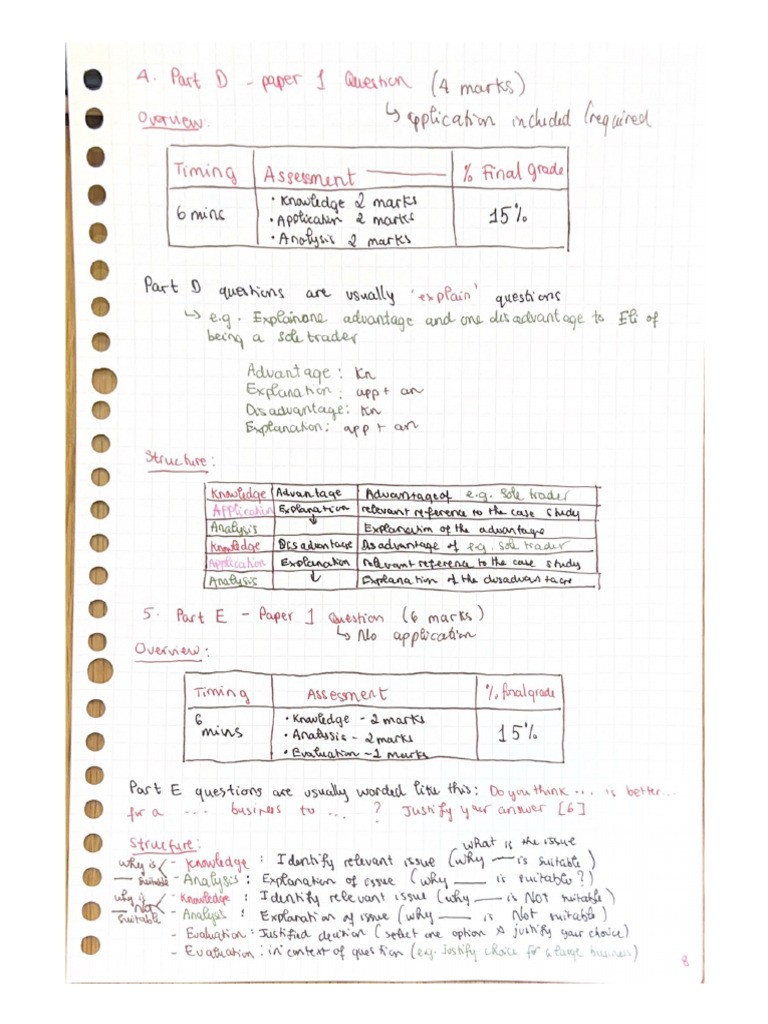 4. Part D - paper 1 Question (4 marks)
↳ application included (required
Overview:
Timing Assessment % Final grade
6 mins • Knowledge 2 marks • Application 2 marks • Analysis 2 marks 15%
Part D questions are usually 'explain' questions
↳ e.g. Explain one advantage and one disadvantage to Eli of
being a sole trader
Advantage: Kn
Explanation: app + an
Disadvantage: Kn
Explanation: app + an
Structure:
Knowledge Advantage Advantage of e.g. sole trader
Application Explanation relevant reference to the case study
Analysis ↓ Explanation of the advantage
Knowledge Disadvantage Disadvantage of e.g. sole trader
Application Explanation relevant reference to the case study
Analysis ↓ Explanation of the disadvantage
5. Part E - Paper 1 Question (6 marks)
↳ No application
Overview:
Timing Assesment % final grade
6 mins • Knowledge - 2 marks • Analysis - 2 marks • Evaluation - 2 marks 15%
Part E questions are usually worded like this: Do you think ... is better...
for a ... business to ... ? Justify your answer [6]
Structure:
what is the issue
why is __ suitable - Knowledge: Identify relevant issue (why __ is suitable)
- Analysis: Explanation of issue (why __ is suitable?)
why is __ Not suitable - Knowledge: Identify relevant issue (why __ is NOT suitable)
- Analysis: Explanation of issue (why __ is Not suitable)
- Evaluation: Justified decision (select one option & justify your choice)
- Evaluation: in context of question (e.g. justify choice for a large business)
8